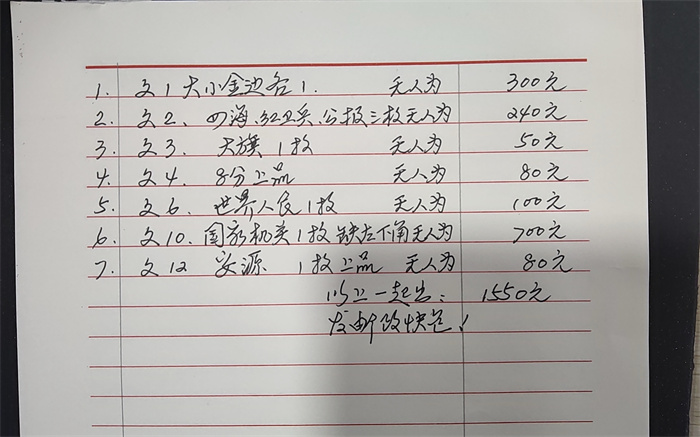 1. 文1大小金边各1. 无人为 300元
2. 文2、四海、红卫兵、公报三枚无人为 240元
3. 文3. 大旗1枚 无人为 50元
4. 文4. 8分上品 无人为 80元
5. 文6. 世界人民1枚 无人为 100元
6. 文10.国家机关1枚缺左下角无人为 700元
7. 文12 安源 1枚上品 无人为 80元
以上一起出: 1550元
发邮政快包!